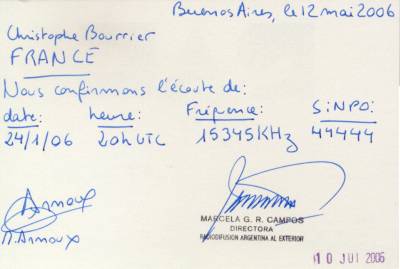 Buenos Aires, le 12 mai 2006
Christophe Bourrier
FRANCE
Nous confirmons l'écoute de:
date: heure: Fréquence: SiNPO:
24/1/06 20h UTC 15345KHz 44444
Arnoux
A. Arnoux
MARCELA G. R. CAMPOS
DIRECTORA
RADIODIFUSION ARGENTINA AL EXTERIOR
10 JUI 2006